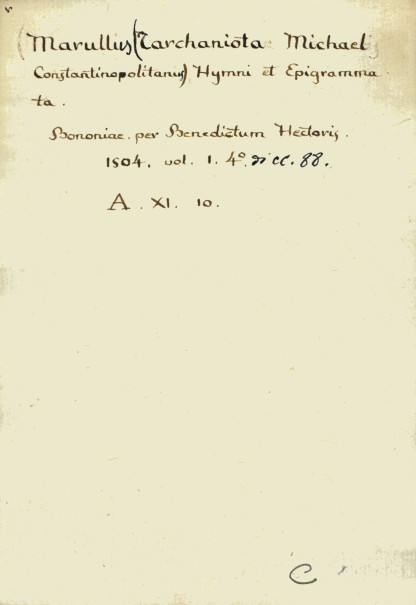 (Marullus (Tarchaniota Michael
Constantinopolitanus) Hymni et Epigramma
ta.
Bononiae. per Benedictum Hectoris.
1504. vol. 1. 4º. di cc. 88.
A. XI. 10.
C